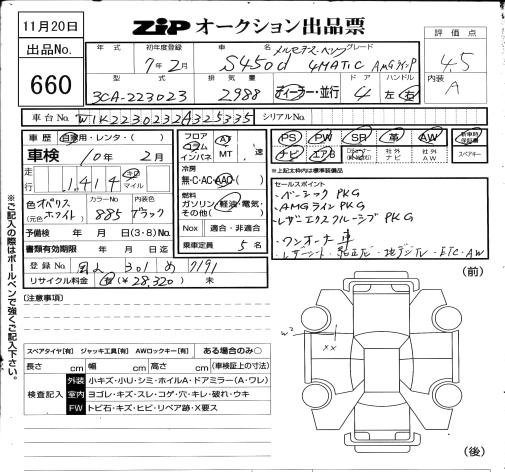 11月20日
ZIP オークション出品票
出品No.
660
年式 初年度登録 車名 グレード 評価点
7年2月 メルセデス・ベンツ S450d 4MATIC AMGラインP 4.5
型式 排気量 ドア ハンドル 内装
3CA-223023 2988 ディーラー・並行 4 左右 A
車台No. W1K2230232A325335 シリアルNo.
車歴 自家用・レンタ( )
車検 10年 2月
走行 1,414 キロ マイル
色 オパリスホワイト (元色) カラーNo. 885 内装色 ブラック
予備検 年 月 日(3・8)No.
書類有効期限 年 月 日迄
登録No. 301 め 7191
リサイクル料金 有(¥28,320) 未
フロア コラム インパネ AT MT 速
冷房 無・C・AC・AAC
燃料 ガソリン・軽油・電気・その他( )
Nox 適合・非適合
乗車定員 5名
PS PW SR 革 AW 新車時保証書
ナビ エアB 社外ナビ 社外AW スペアキー
※上記太枠内は標準装備品
セールスポイント
・ベーシックPKG
・AMGラインPKG
・レザーエクスクルーシブPKG
・ワンオーナー車
・レザーシート・純正ナビ・地デジTV・ETC・AW
(注意事項)
スペアタイヤ[有] ジャッキ工具[有] AWロックキー[有] ある場合のみ○
長さ cm 幅 cm 高さ cm (車検証上の寸法)
検査記入
外装 小キズ・小U・シミ・ホイルA・ドアミラー(A・ワレ)
室内 ヨゴレ・キズ・スレ・コゲ・穴・キレ・破れ・ウキ
FW トビ石・キズ・ヒビ・リペア跡・X要ス
※ご記入の際はボールペンで強くご記入下さい。
(前)
W2
XX
(後)